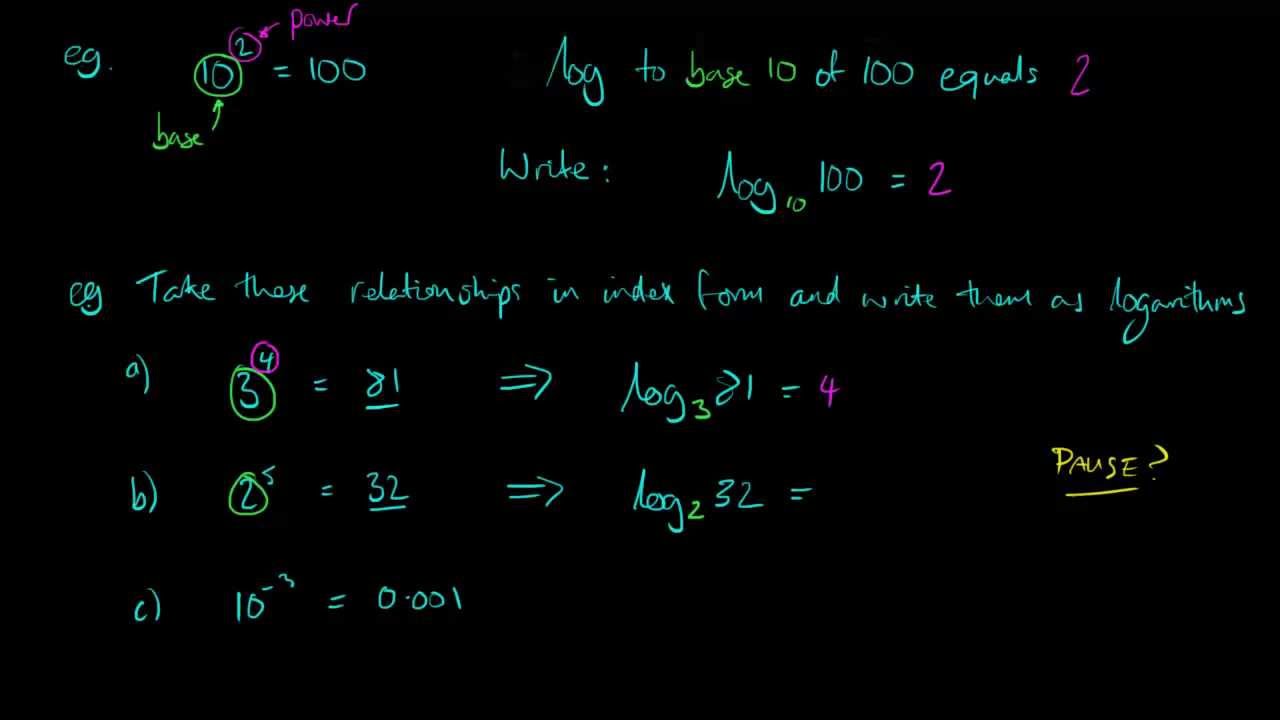 eg. 10² = 100 ← power
base
log to base 10 of 100 equals 2
Write: log₁₀ 100 = 2
eg Take these relationships in index form and write them as logarithms
a) 3⁴ = 81 ⟹ log₃ 81 = 4
PAUSE?
b) 2⁵ = 32 ⟹ log₂ 32 =
c) 10⁻³ = 0·001